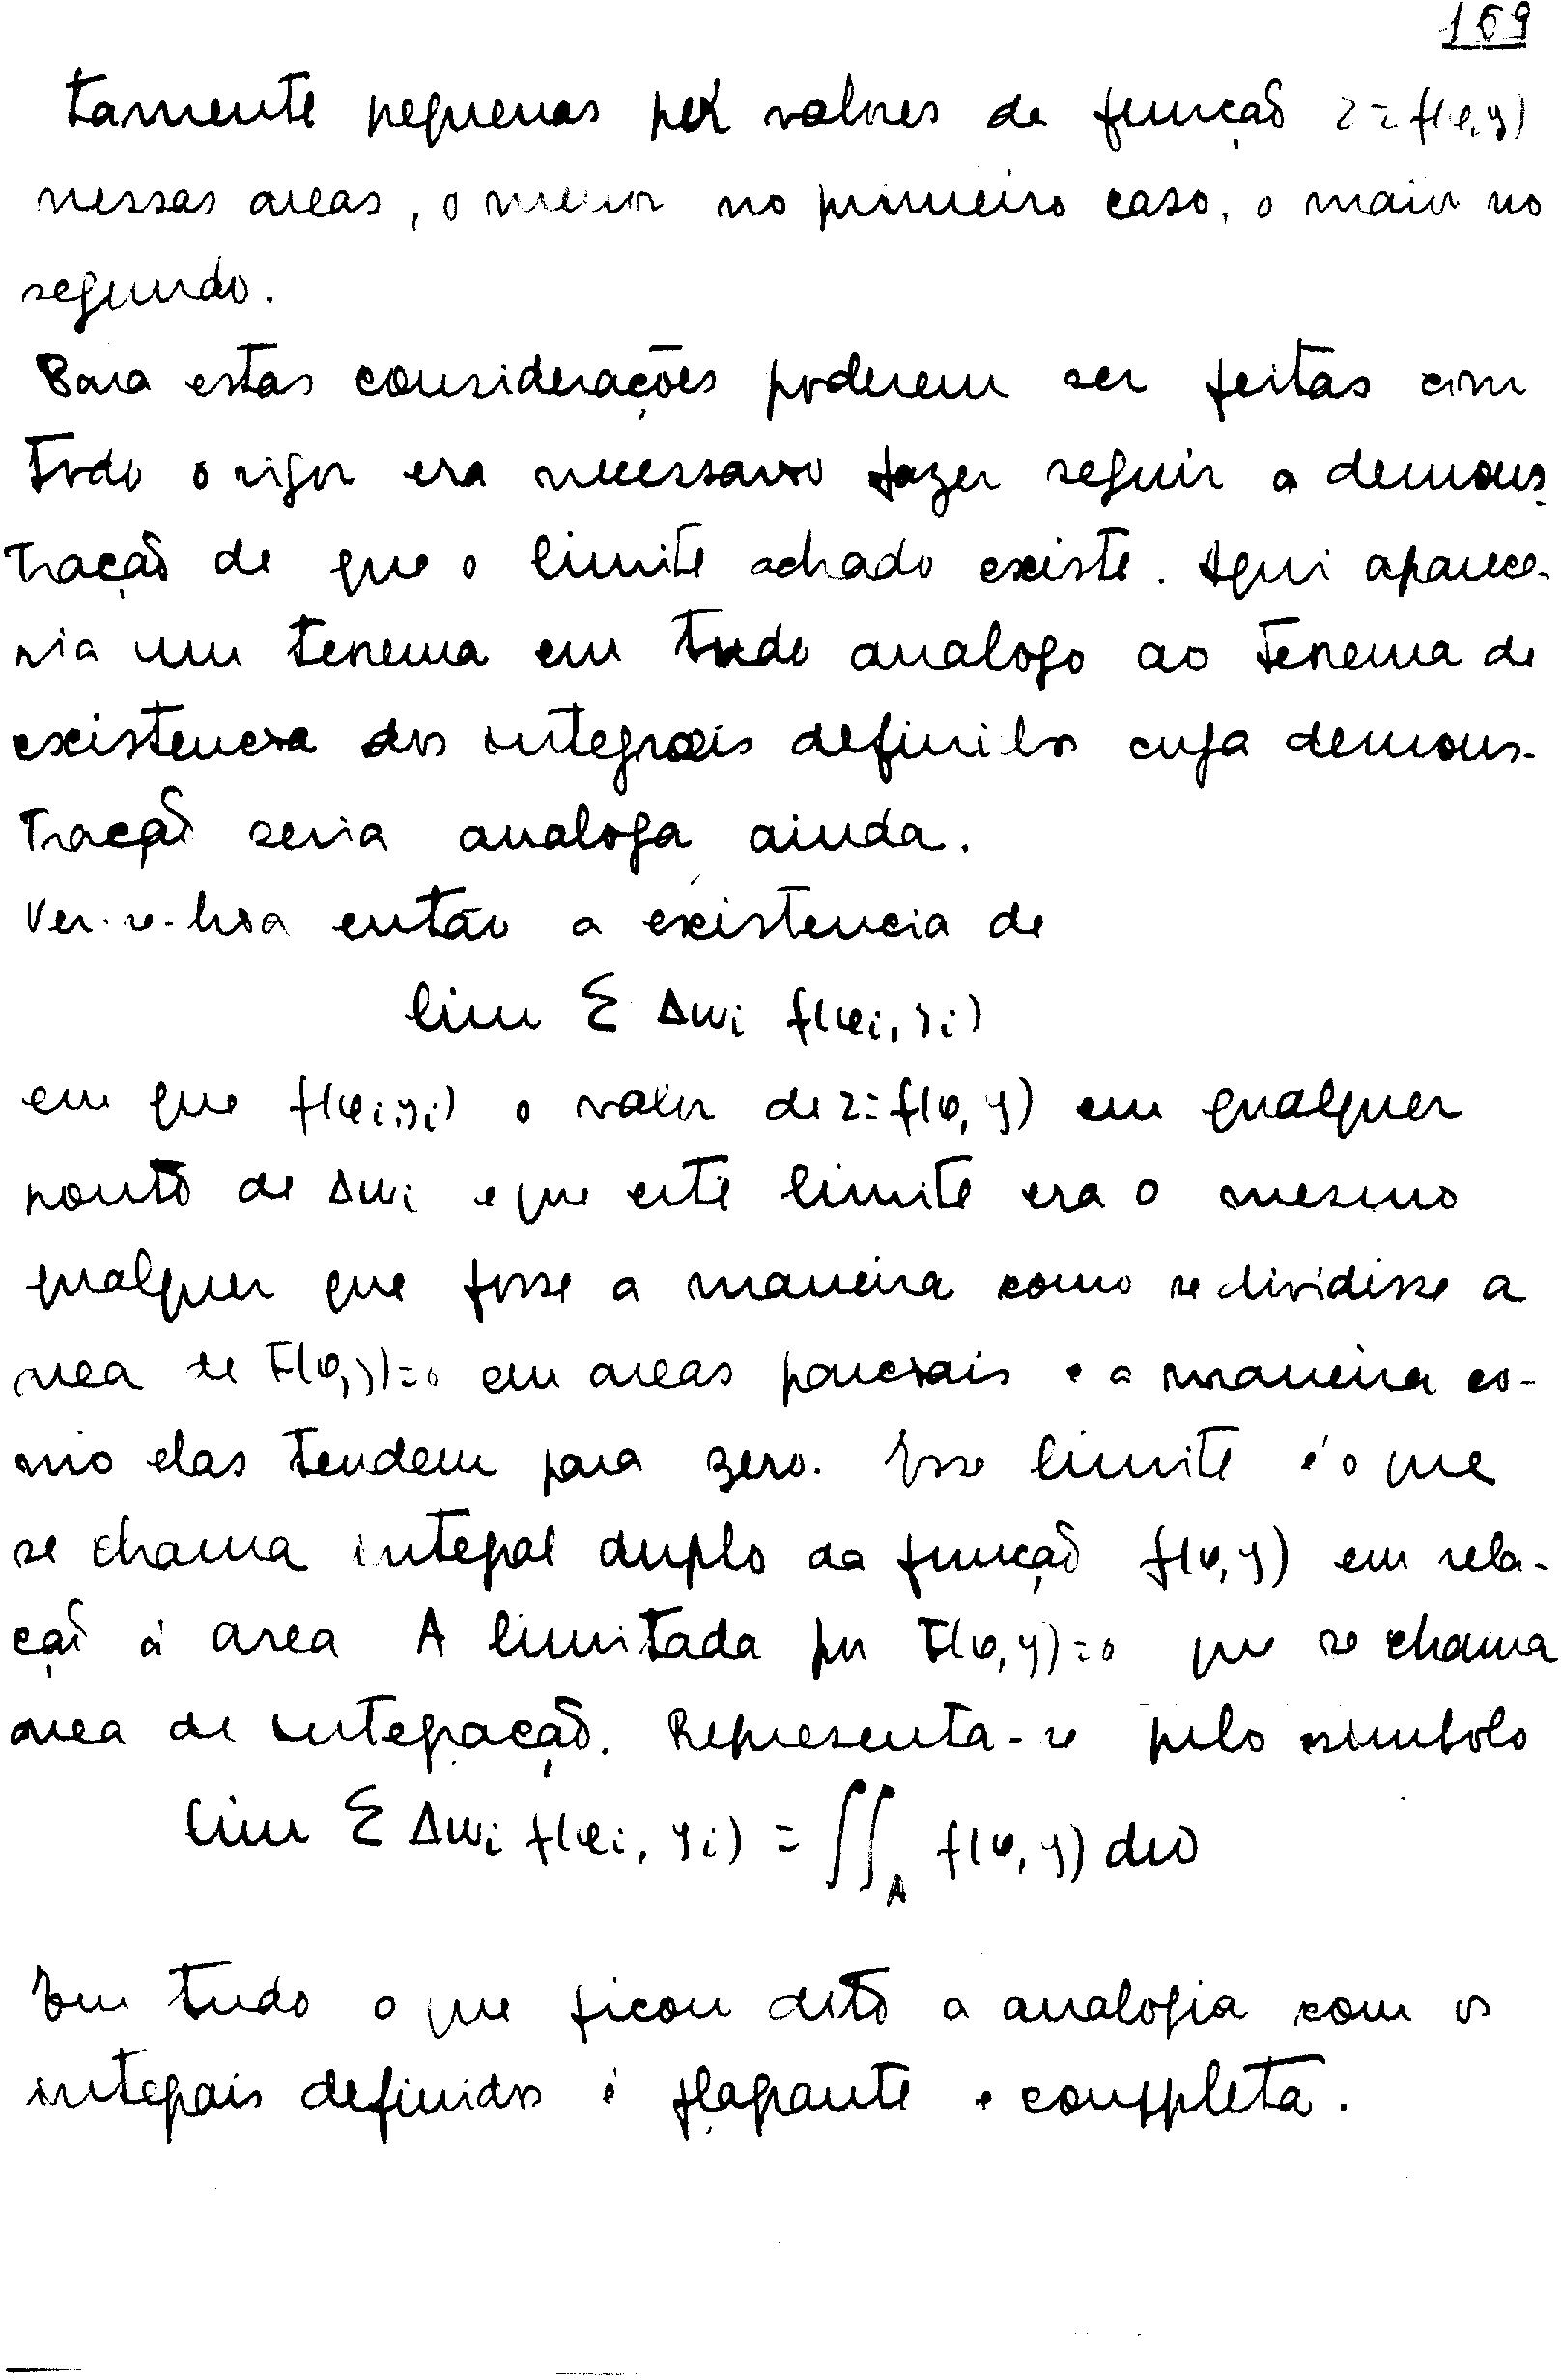 169
tamente pequenas por valores da função z = f(x,y)
nessas areas, o menor no primeiro caso, o maior no
segundo.
Para estas considerações poderem ser feitas com
todo o rigor era necessario fazer seguir a demons-
tração de que o limite achado existe. Aqui aparece-
ria um teorema em tudo analogo ao teorema de
existencia dos integrais definidos cuja demons-
tração seria analoga ainda.
Ver-se-hia então a existencia de
lim Σ Δωi f(xi, yi)
em que f(xi, yi) o valor de z = f(x, y) em qualquer
ponto de Δωi e que este limite era o mesmo
qualquer que fosse a maneira como se dividisse a
area de F(x,y)=0 em areas parciais e a maneira co-
mo elas tendem para zero. Esse limite é o que
se chama integral duplo da função f(x, y) em rela-
ção á area A limitada por F(x, y)=0 que se chama
area de integração. Representa-se pelo simbolo
lim Σ Δωi f(xi, yi) = ∬A f(x, y) dω
Em tudo o que ficou dito a analogia com os
integrais definidos é flagrante e completa.